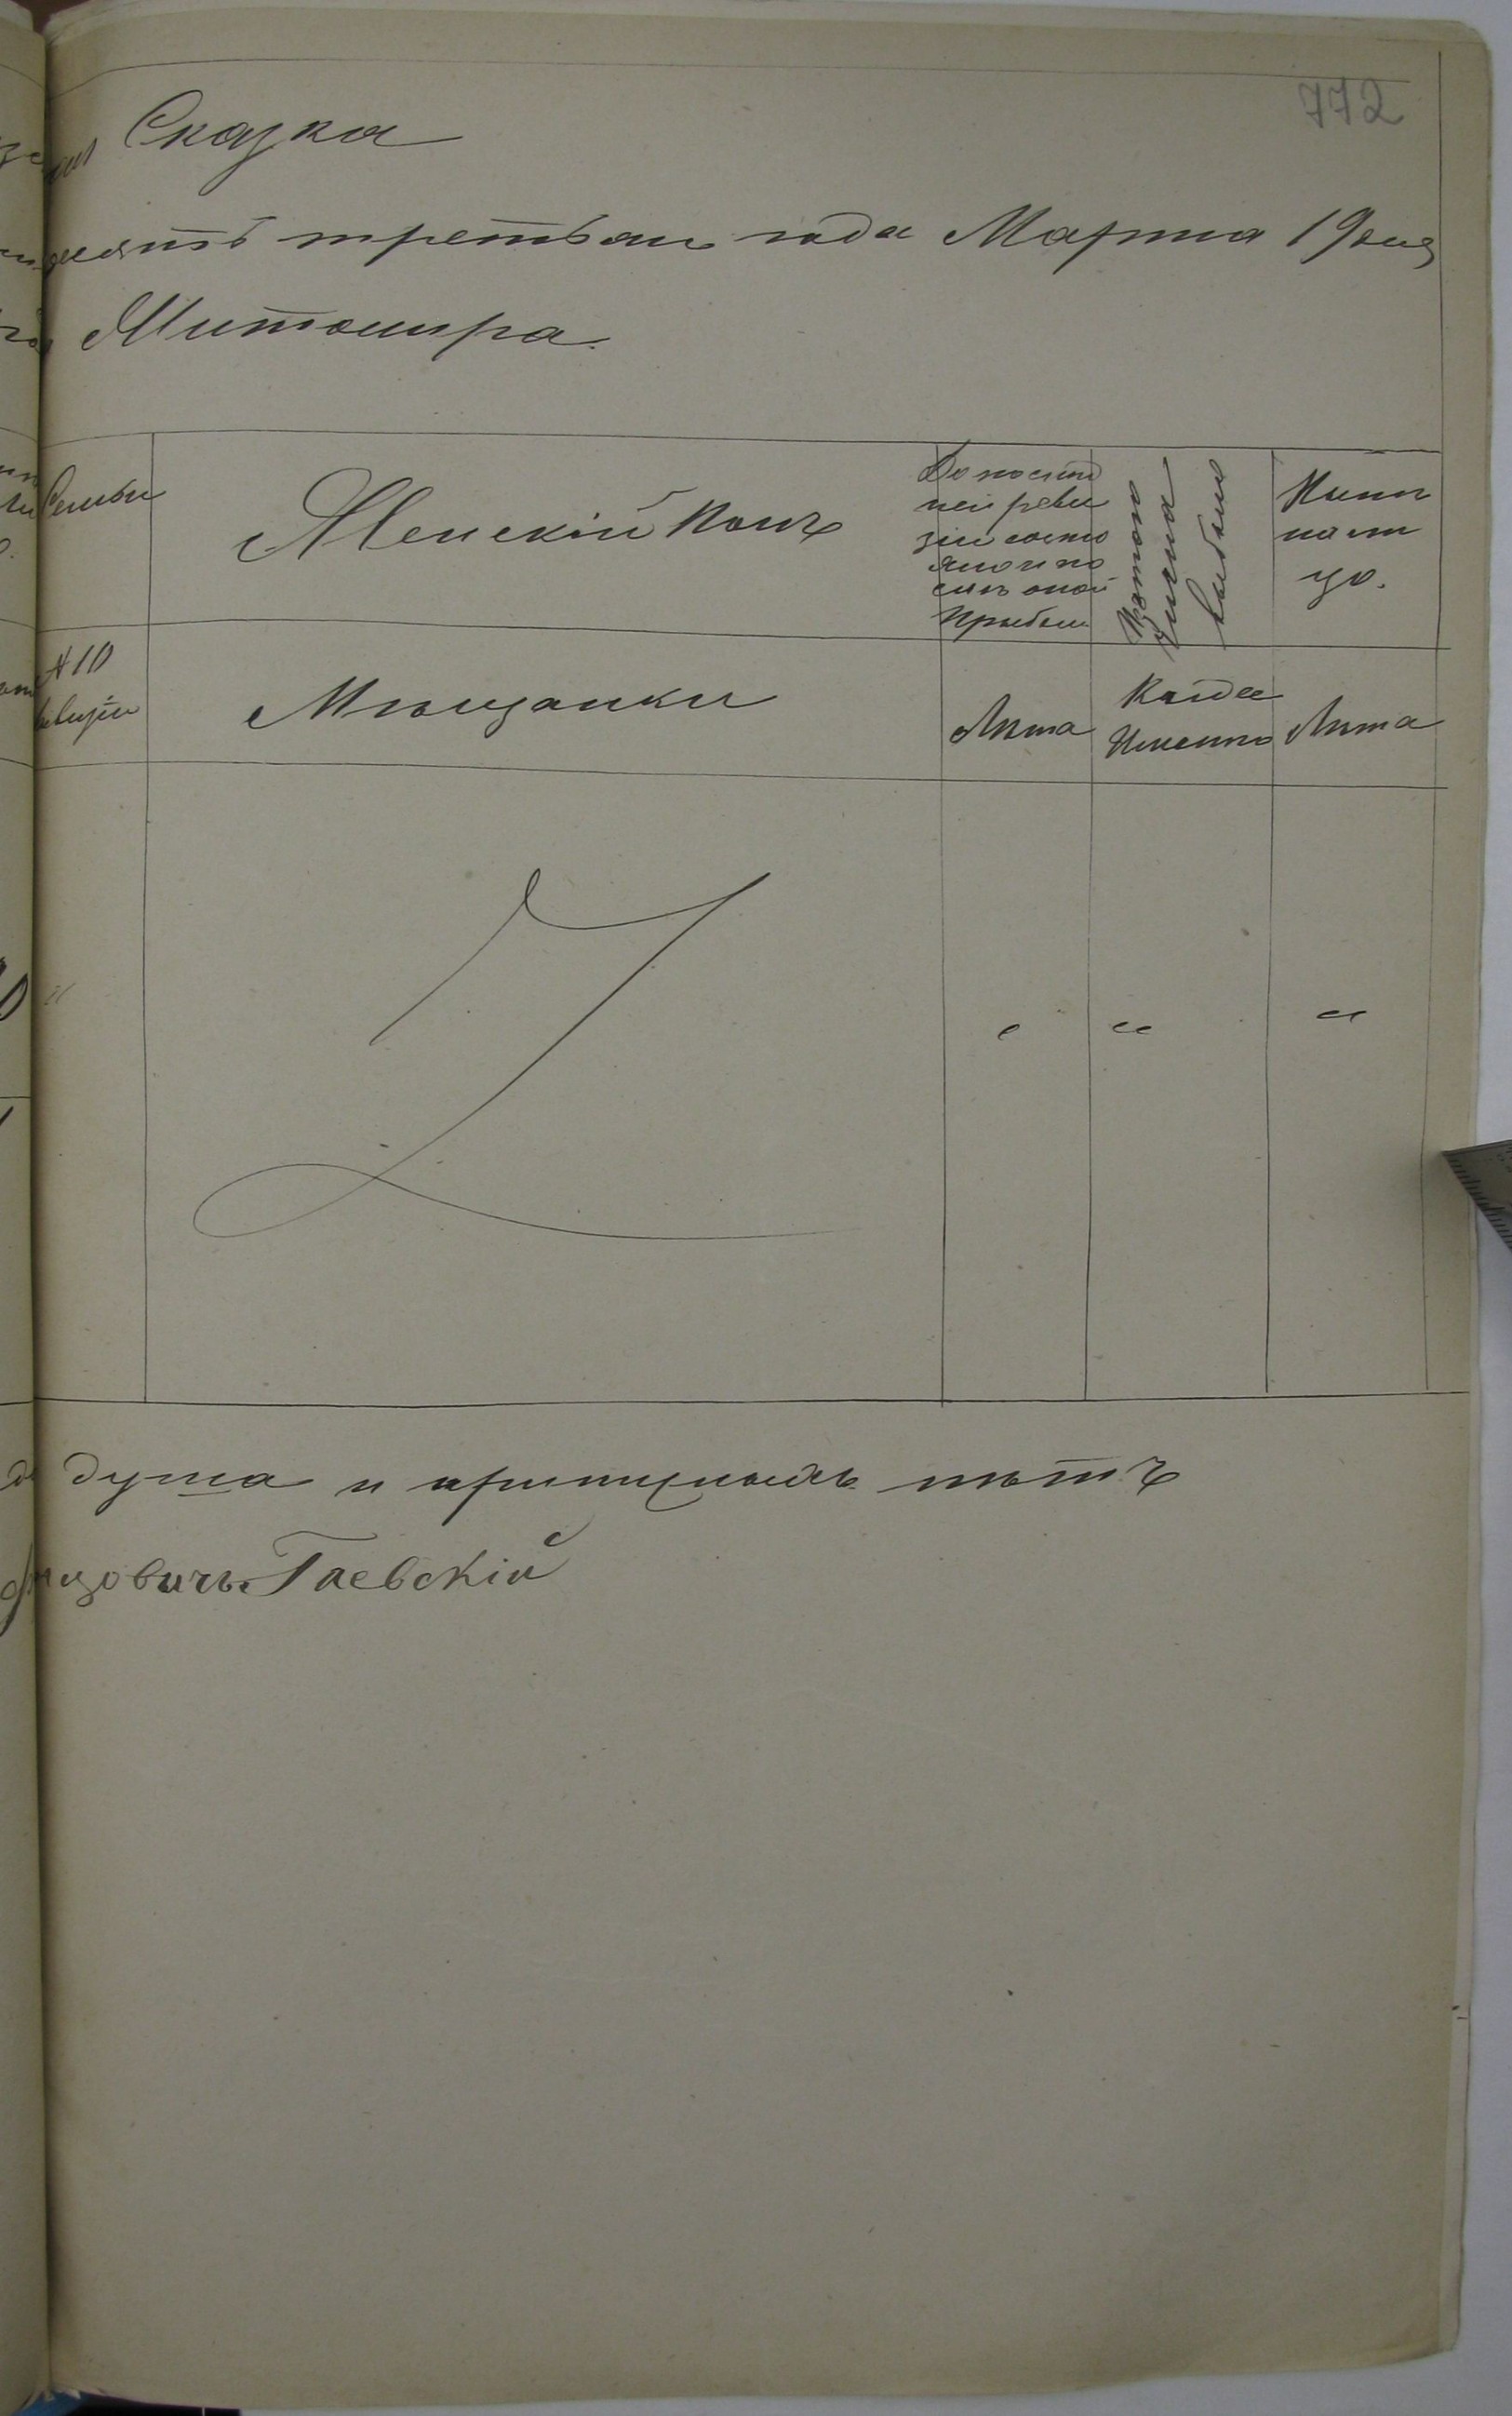 772
Сказка
десятъ третьяго года Марта 19 дня
Житомира.
Семьи
Женскій полъ
До послѣд
ней реви
зіи состо
яло и по
слѣ оной
прибыло
Изъ того
числа
выбыло
Нынѣ
на ли
цо.
№ 10
ревизіи
Мѣщанки
Лѣта
Когда
Именно
Лѣта
" " "
душа и прописныхъ нѣтъ
Гаевскій